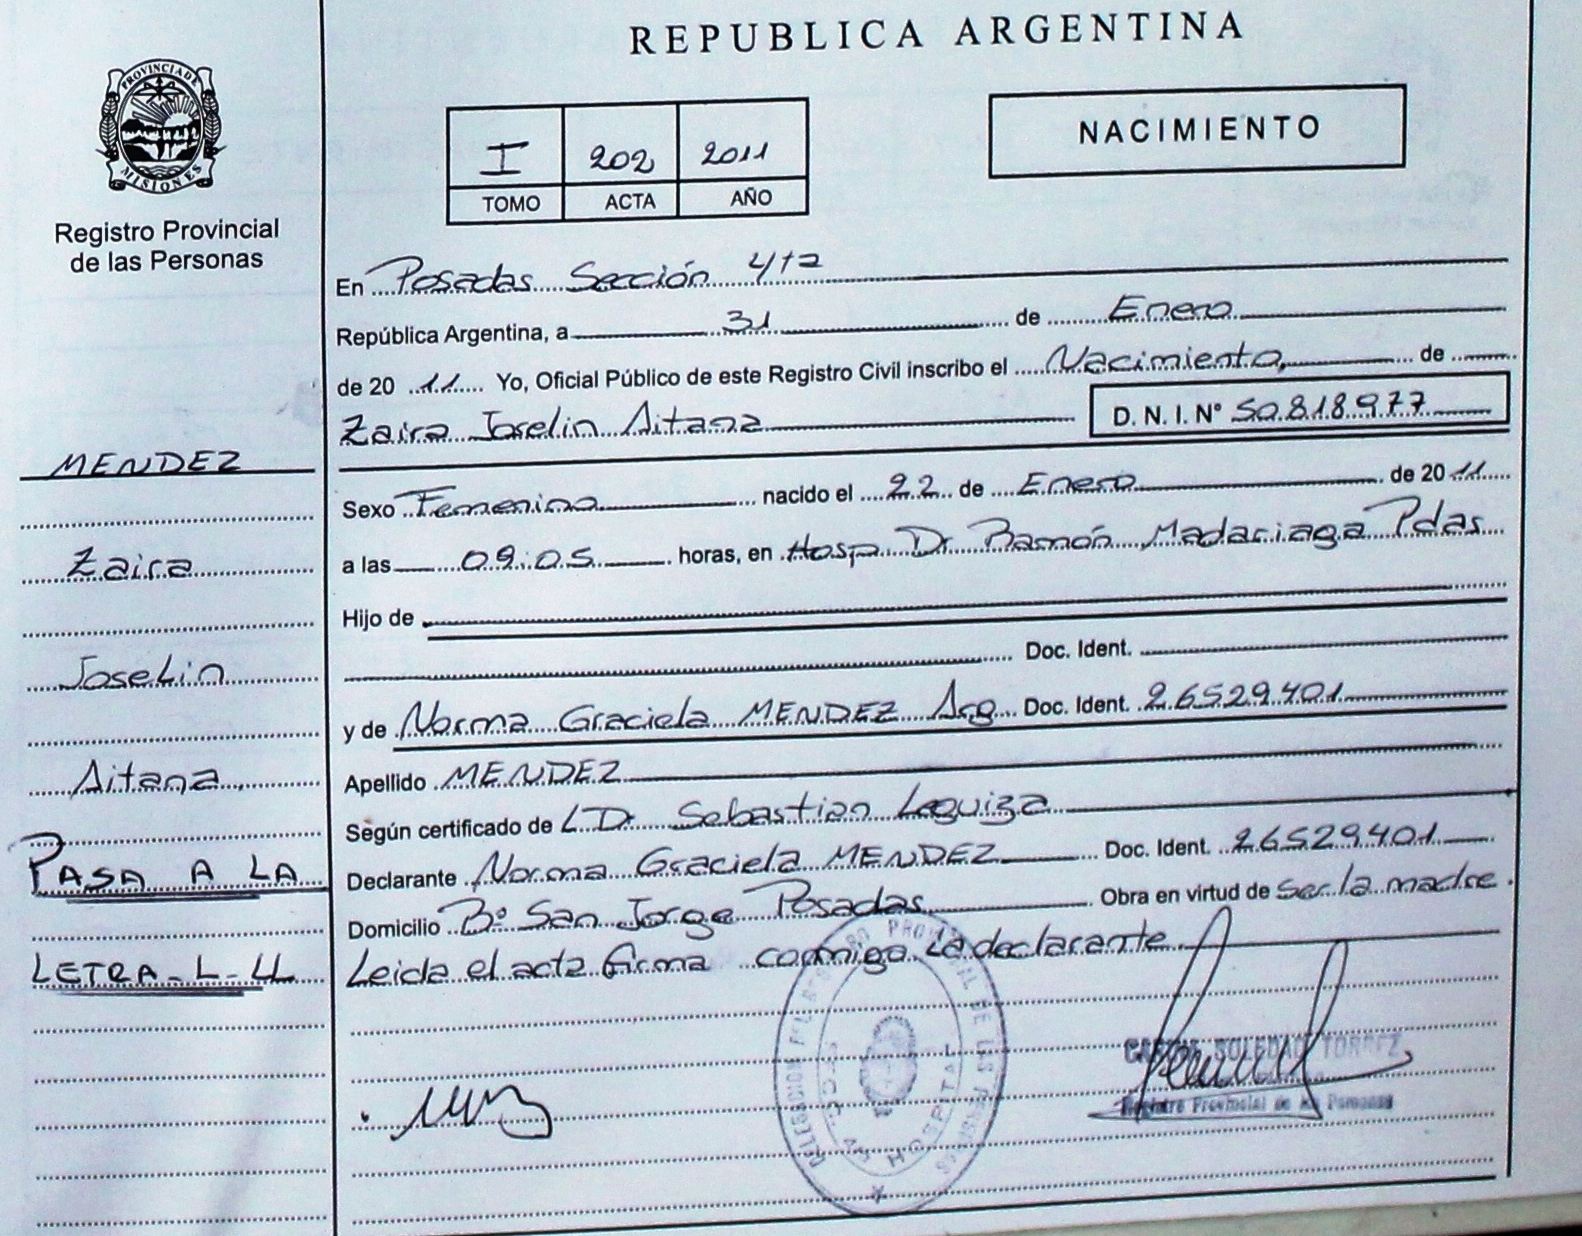 REPUBLICA ARGENTINA
PROVINCIA DE
MISIONES
Registro Provincial
de las Personas
NACIMIENTO
I 202 2011
TOMO ACTA AÑO
En Posadas Sección 4ta
República Argentina, a 31 de Enero
de 2011 Yo, Oficial Público de este Registro Civil inscribo el Nacimiento, de
Zaira Joselin Aitana D. N. I. Nº 50.818.977
Sexo Femenino nacido el 22 de Enero de 2011
a las 09:05 horas, en Hosp Dr Ramón Madariaga Pdas
Hijo de
Doc. Ident.
y de Norma Graciela MENDEZ Arg Doc. Ident. 26529.401
Apellido MENDEZ
Según certificado de LDr Sebastian Leguiza
Declarante Norma Graciela MENDEZ Doc. Ident. 26529401
Domicilio Bº San Jorge Posadas Obra en virtud de ser la madre.
Leida el acta firma conmigo la declarante
MENDEZ
Zaira
Joselin
Aitana
PASA A LA
LETRA-L-LL
PROVINCIAL DE LAS PERSONAS
HOSPITAL
SOLEDAD TORREZ
Registro Provincial de las Personas